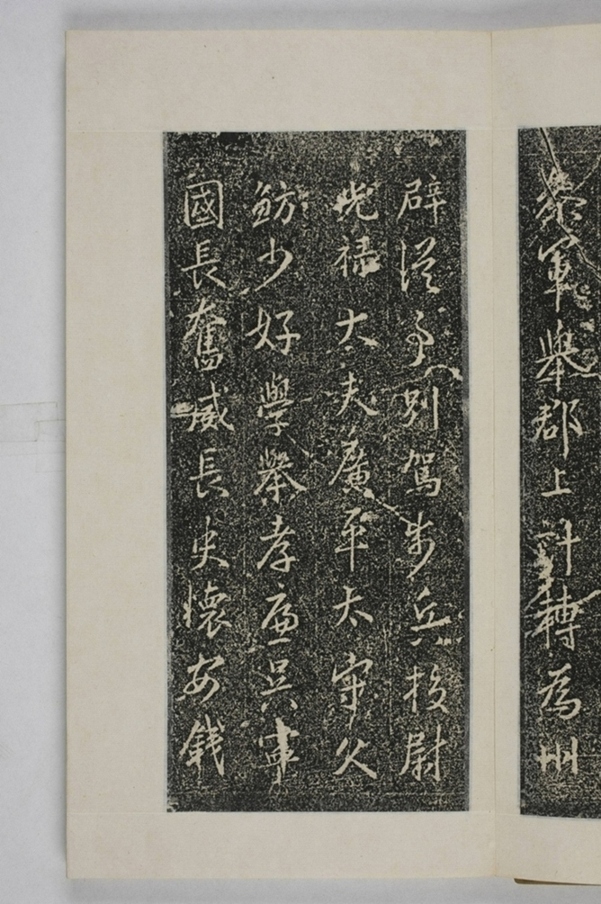 參軍舉郡上計轉為州
辟從事別駕步兵校尉
光祿大夫廣平太守父
魴少好學舉孝廉吳寧
國長奮威長史懷安錢